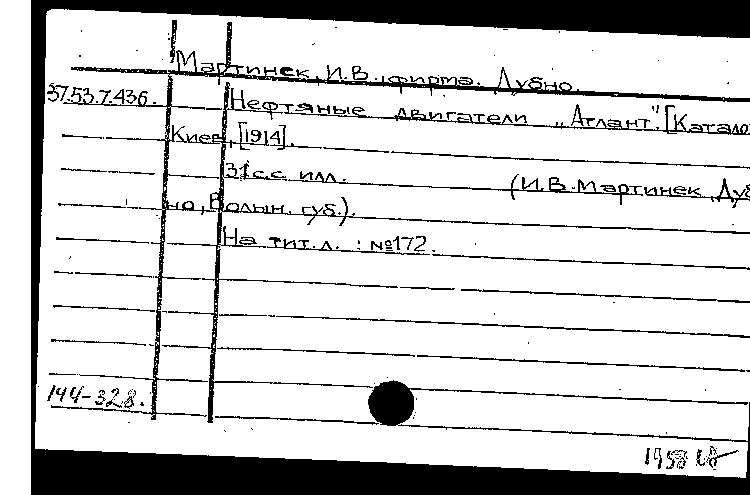 Мартинек, И.В., фирма. Дубно.
37.53.7.436. Нефтяные двигатели „Атлант". [Катало
Киев, [1914].
31 с.с илл. (И.В. Мартинек, Дуб
но, Волын. губ.).
На тит. л. : №172.
144-328.
1958